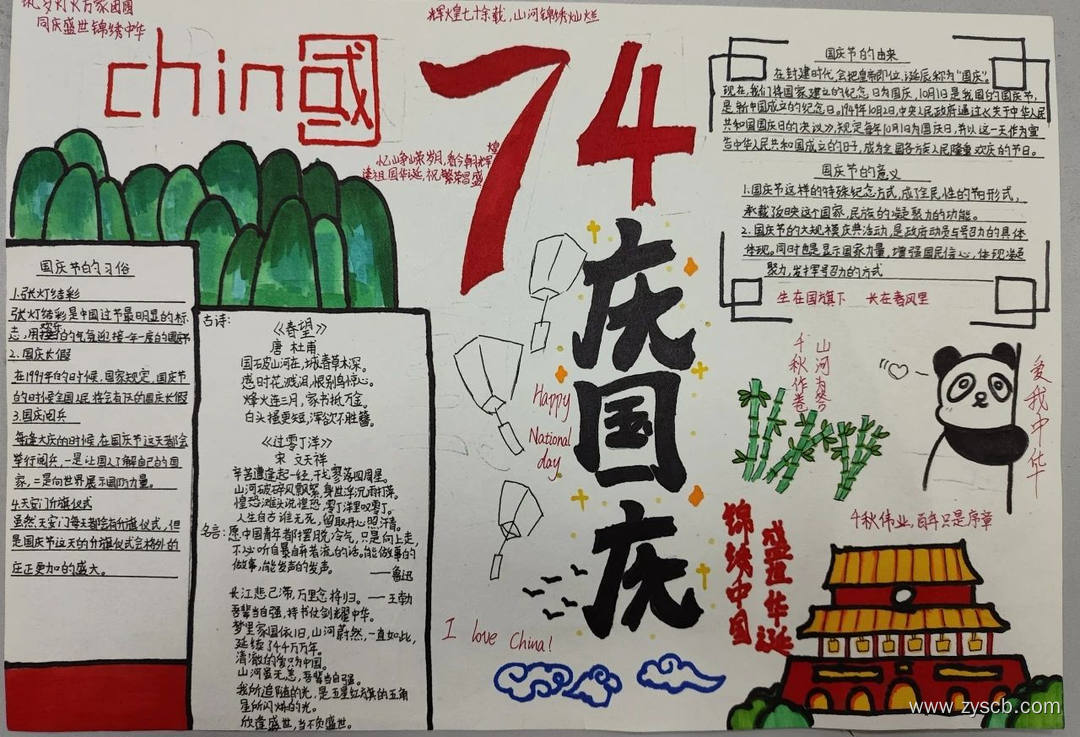 同庆盛世锦绣中华
chin國
辉煌七十余载，山河锦绣灿烂
74
忆山争嵘岁月，看今朝辉煌
逢祖国华诞，祝繁荣昌盛
国庆节的由来
在封建时代，会把皇帝即位、诞辰称为“国庆”。
现在，我们将国家建立的纪念日为国庆，10月1日是我国的国庆节，
是新中国成立的纪念日。1949年10月2日，中央人民政府通过《关于中华人民
共和国国庆日的决议》，规定每年10月1日为国庆日，并以这一天作为宣
告中华人民共和国成立的日子，成为全国各族人民隆重欢庆的节日。
国庆节的意义
1.国庆节这样的特殊纪念方式，成
承载反映这个国家，民族的凝聚力的功能。
2.国庆节的大规模庆典活动，是政府动员与号召力的具体
体现。同时也是显示国家力量，增强国民信心，体现凝
聚力，发挥号召力的方式
生在国旗下 长在春风里
国庆节的习俗
1.张灯结彩
张灯结彩是中国过节最明显的标
2.国庆长假
在1999年的时候，国家规定，国庆节
的时候全国人民将会有7天的国庆长假
3.国庆阅兵
每逢大庆的时候，在国庆节这天都会
举行阅兵，一是让国人了解自己的国
家，二是向世界展示国防力量。
4.天安门升旗仪式
虽然天安门每天都会有升旗仪式，但
是国庆节这天的升旗仪式会格外的
庄正更加的盛大。
古诗：
《春望》
唐 杜甫
国破山河在，城春草木深。
感时花溅泪，恨别鸟惊心。
烽火连三月，家书抵万金。
白头搔更短，浑欲不胜簪。
《过零丁洋》
宋 文天祥
辛苦遭逢起一经，干戈寥落四周星。
山河破碎风飘絮，身世浮沉雨打萍。
惶恐滩头说惶恐，零丁洋里叹零丁。
人生自古谁无死，留取丹心照汗青。
名言：愿中国青年都摆脱冷气，只是向上走，
不必听自暴自弃者流的话。能做事的
做事，能发声的发声。
——鲁迅
长江悲已滞，万里念将归。——王勃
吾辈当自强，持书仗剑耀中华。
梦里家国依旧，山河蔚然，一直如此，
延续了44万万年。
清澈的爱只为中国。
山河虽无恙，吾辈当自强。
我所追随的光，是五星红旗的五角
星所闪烁的光。
欣逢盛世，当不负盛世。
庆国庆
Happy
National
day
I love China!
山河为答
千秋作卷
爱我中华
千秋伟业，百年只是序章
锦绣中国
盛世华诞
www.zyscb.com